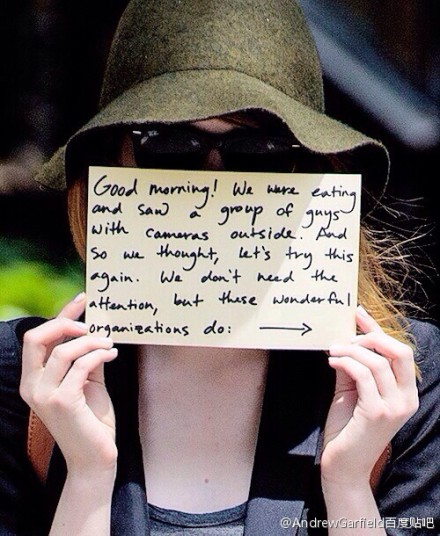 Good morning! We were eating
and saw a group of guys
with cameras outside. And
so we thought, let's try this
again. We don't need the
attention, but these wonderful
organizations do: →
@AndrewGarfield百度贴吧